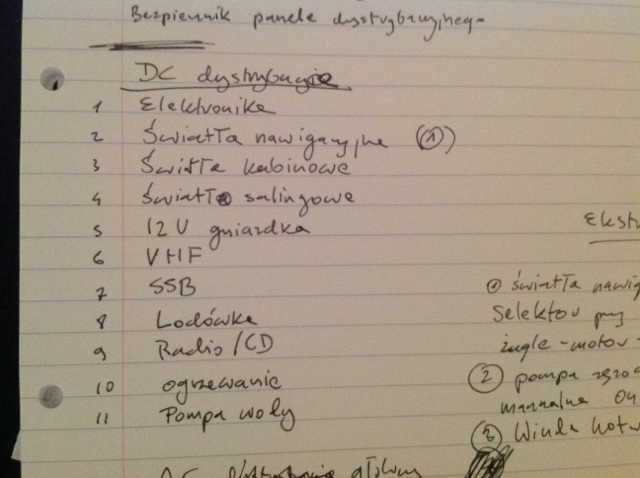 Bezpiecznik panele dystrybucyjnego
DC dystrybucje
1 Elektronika
2 Światła nawigacyjne (1)
3 Światła kabinowe
4 Światła salingowe
5 12V gniazdka
6 VHF
7 SSB
8 Lodówka
9 Radio/CD
10 ogrzewanie
11 Pompa wody
AC
Ekst
1 światła nawig
Selektor
żagle-motor-
2 pompa
manualna
3 Winda kotw